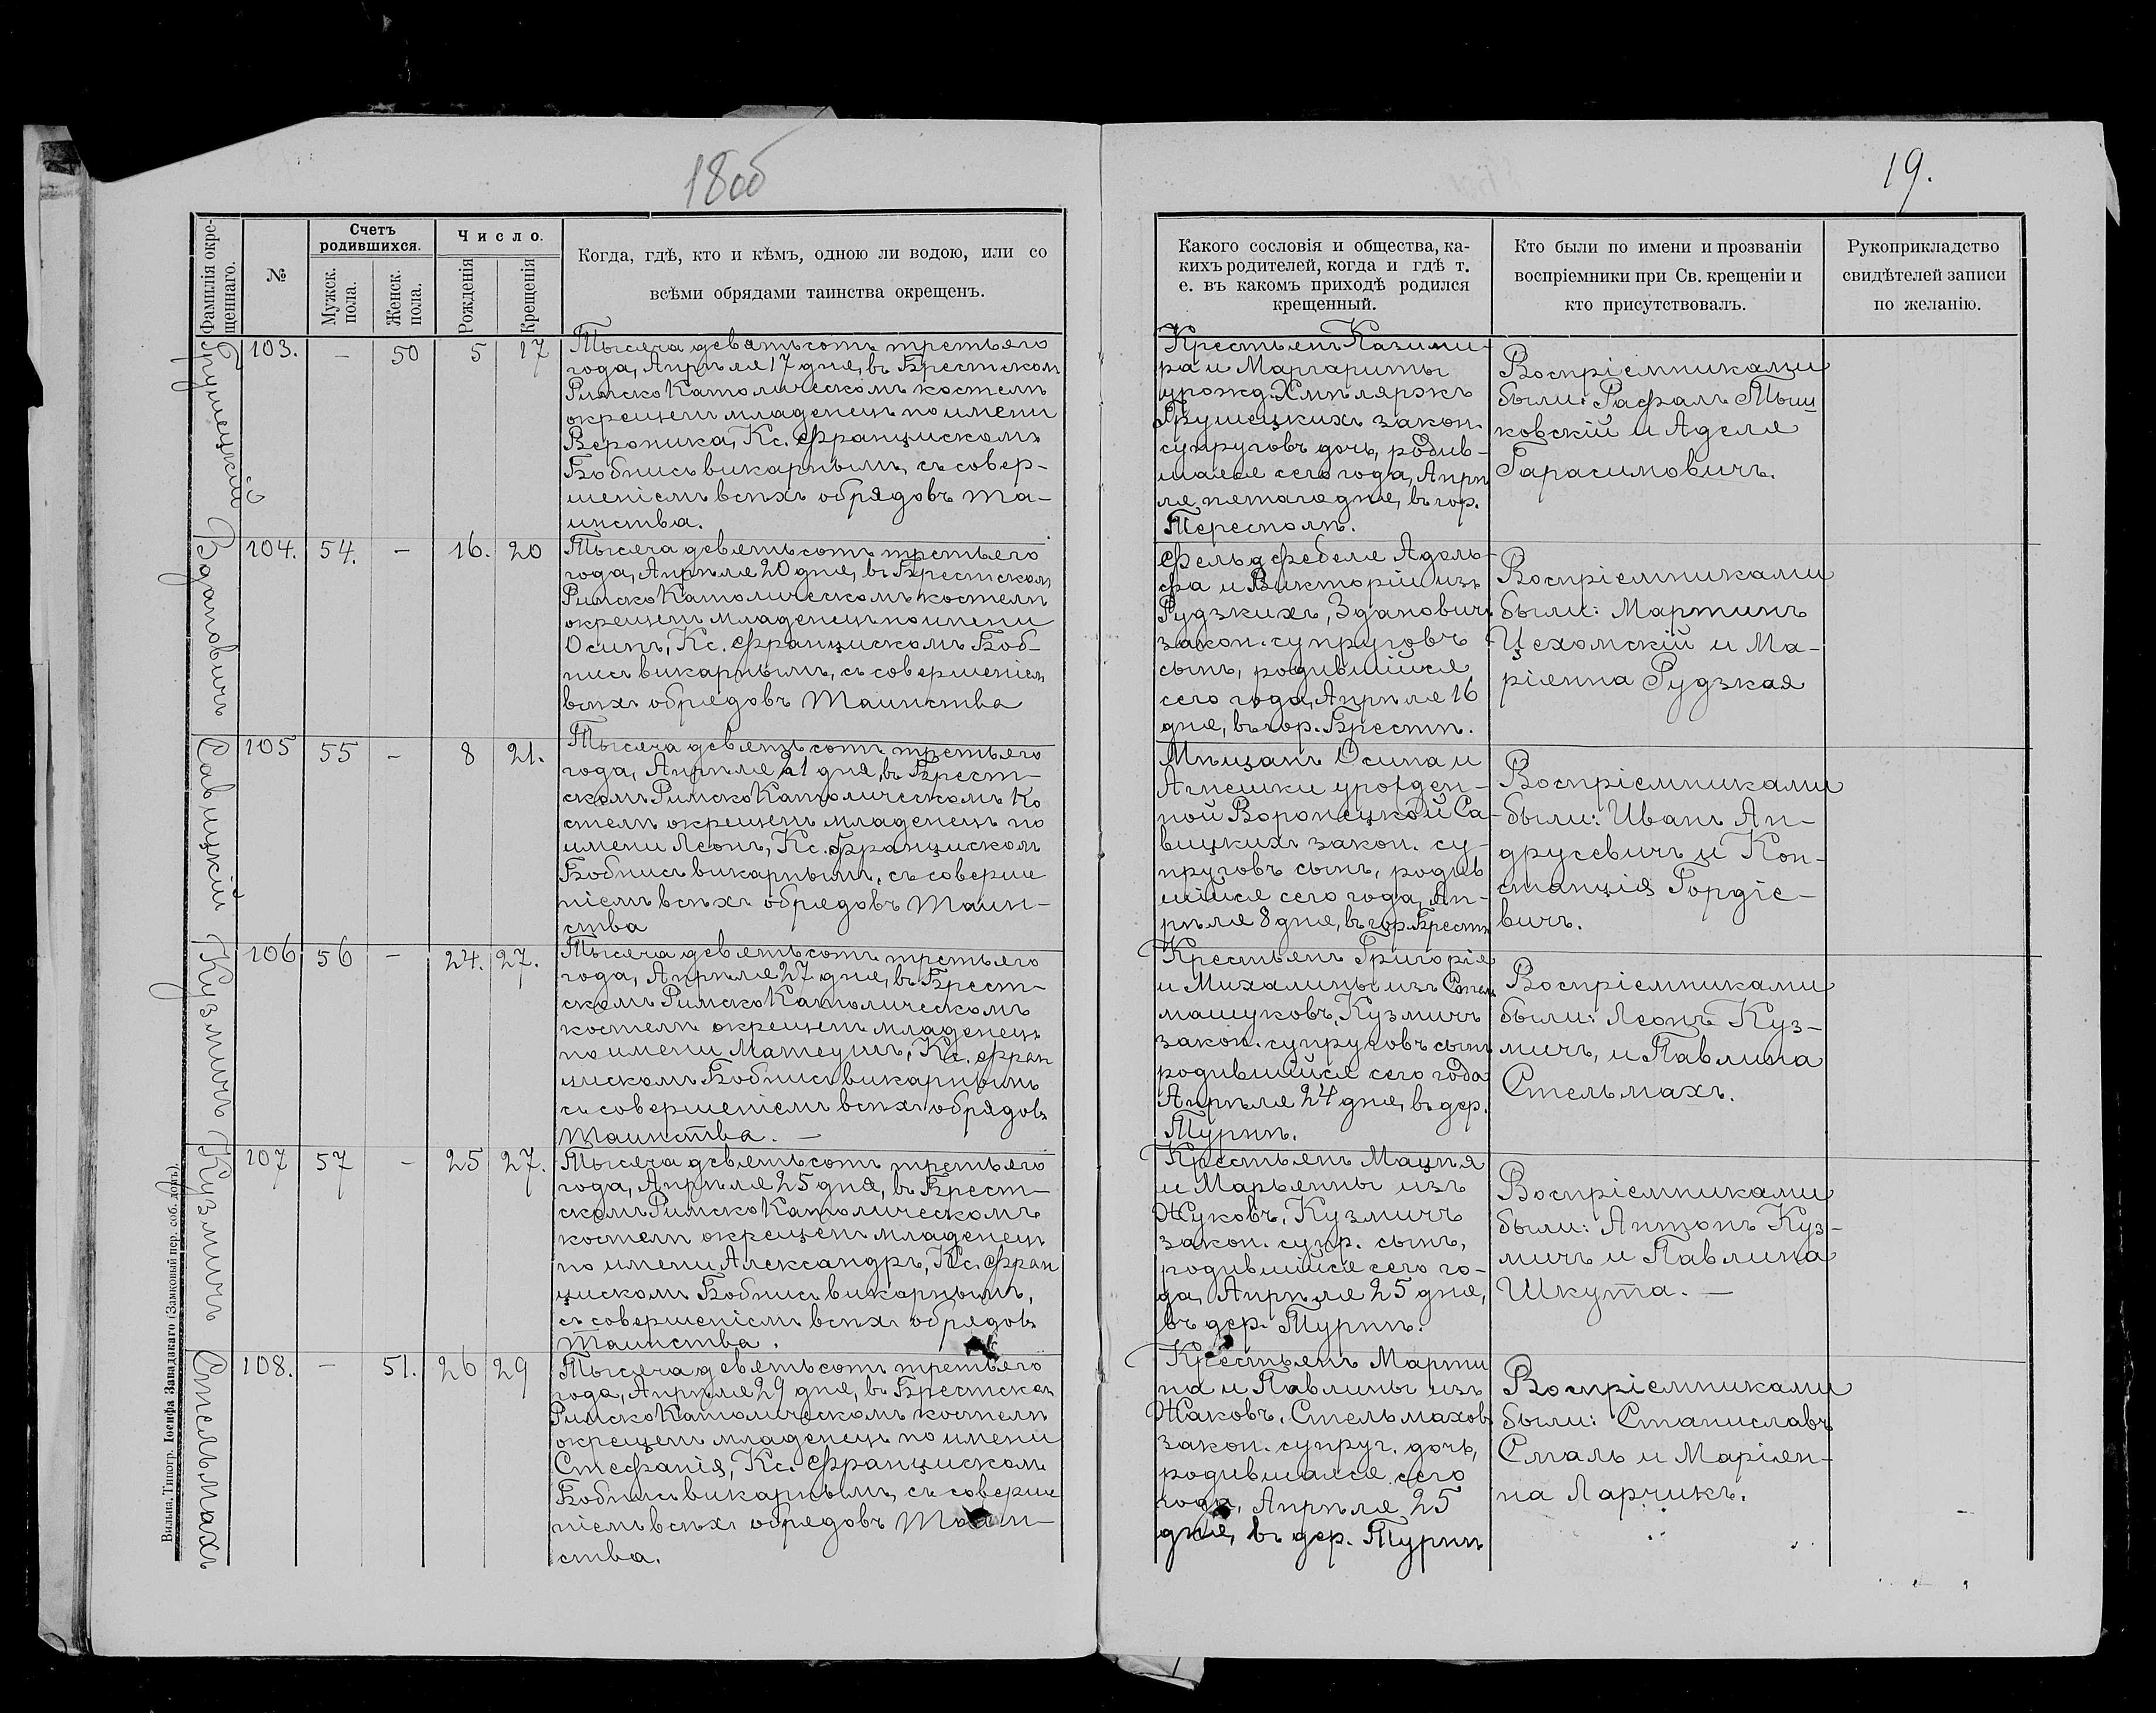 18об
19.
Фамилія окре-
щеннаго.
№
Счетъ
родившихся.
Мужск.
пола.
Женск.
пола.
Число.
Рожденія
Крещенія
Когда, гдѣ, кто и кѣмъ, одною ли водою, или со
всѣми обрядами таинства окрещенъ.
Какого сословія и общества, ка-
кихъ родителей, когда и гдѣ т.
е. въ какомъ приходѣ родился
крещенный.
Кто были по имени и прозваніи
воспріемники при Св. крещеніи и
кто присутствовалъ.
Рукоприкладство
свидѣтелей записи
по желанію.
Грушецкій
103. — 50 5 17
Тысяча девятьсотъ третьяго
года, Апрѣля 17 дня, въ Брестском
Римско Католическомъ костелѣ
окрещенъ младенецъ по имени
Вероника, Кс. Францискомъ
Бобнисъ викарнымъ, съ совер-
шеніемъ всѣхъ обрядовъ та-
инства.
Крестьянъ Казими-
ра и Маргариты
урожд. Хмѣляржъ
Грушецкихъ закон.
супруговъ дочь, родив-
шаяся сего года, Апрѣ
ля пятаго дня, въ гор.
Тересполѣ.
Воспріемниками
были: Рафалъ Мыш
ковскій и Аделя
Гарасимовичъ.
Здановичъ
104. 54. — 16. 20
Тысяча девятьсотъ третьяго
года, Апрѣля 20 дня, въ Брестском
Римско Католическомъ костелѣ
окрещенъ младенецъ по имени
Осипъ, Кс. Францискомъ Боб-
нисъ викарнымъ, съ совершеніем
всѣхъ обрядовъ Таинства
Фельдфебеля Адоль-
фа и Викторіи изъ
Рудзкихъ, Здановичъ
закон. супруговъ
сынъ, родившійся
сего года, Апрѣля 16
дня, въ гор. Брестѣ.
Воспріемниками
были: Мартинъ
Цехомскій и Ма-
ріянна Рудзкая
Савицкій
105 55 — 8 21.
Тысяча девятьсотъ третьяго
года, Апрѣля 21 дня, въ Брест-
скомъ Римско Католическомъ ко
стелѣ окрещенъ младенецъ по
имени Леонъ, Кс. Францискомъ
Бобнисъ викарнымъ, съ соверше
ніемъ всѣхъ обрядовъ Таин-
ства
Мѣщанъ Осипа и
Агнешки урожден-
ной Воронецкой Са-
вицкихъ закон. су-
пруговъ сынъ, родив
шійся сего года, Ап-
рѣля 8 дня, въ гор. Брестѣ
Воспріемниками
были: Иванъ Ан-
друсевичъ и Кон-
станція Гордіе-
вичъ.
Кузмичъ
106 56 — 24. 27.
Тысяча девятьсотъ третьяго
года, Апрѣля 27 дня, въ Брест-
скомъ Римско Католическомъ
костелѣ окрещенъ младенецъ
по имени Матеушъ, Кс. Фран
цискомъ Бобнисъ викарнымъ
съ совершеніемъ всѣхъ обрядовъ
Таинства. —
Крестьянъ Григорія
и Михалины изъ Стель
машуковъ, Кузмичъ
закон. супруговъ сынъ
родившійся сего года
Апрѣля 24 дня, въ дер.
Туринъ.
Воспріемниками
были: Леонъ Куз-
мичъ, и Павлина
Стельмахъ.
Кузмичъ
107 57 — 25 27.
Тысяча девятьсотъ третьяго
года, Апрѣля 25 дня, въ Брест-
скомъ Римско Католическомъ
костелѣ окрещенъ младенецъ
по имени Александръ, Кс. Фран
цискомъ Бобнисъ викарнымъ,
съ совершеніемъ всѣхъ обрядовъ
Таинства.
Крестьянъ Мацѣя
и Марьянны изъ
Жуковъ, Кузмичъ
закон. супр. сынъ,
родившійся сего го-
да, Апрѣля 25 дня,
въ дер. Туринъ.
Воспріемниками
были: Антонъ Куз-
мичъ и Павлина
Шкута. —
Стельмахъ
108. — 51. 26 29
Тысяча девятьсотъ третьяго
года, Апрѣля 29 дня, въ Брестском
Римско Католическомъ костелѣ
окрещенъ младенецъ по имени
Стефанія, Кс. Францискомъ
Бобнисъ викарнымъ, съ соверше
ніемъ всѣхъ обрядовъ Таин-
ства.
Крестьянъ Марти
на и Павлины изъ
Жаковъ, Стельмаховъ
закон. супруг. дочь,
родившаяся сего
года, Апрѣля 25
дня, въ дер. Туринъ
Воспріемниками
были: Станиславъ
Смаль и Маріян-
на Ларчикъ.
Вильна, Типогр. Іосифа Завадзкаго (Замковый пер. соб. домъ)